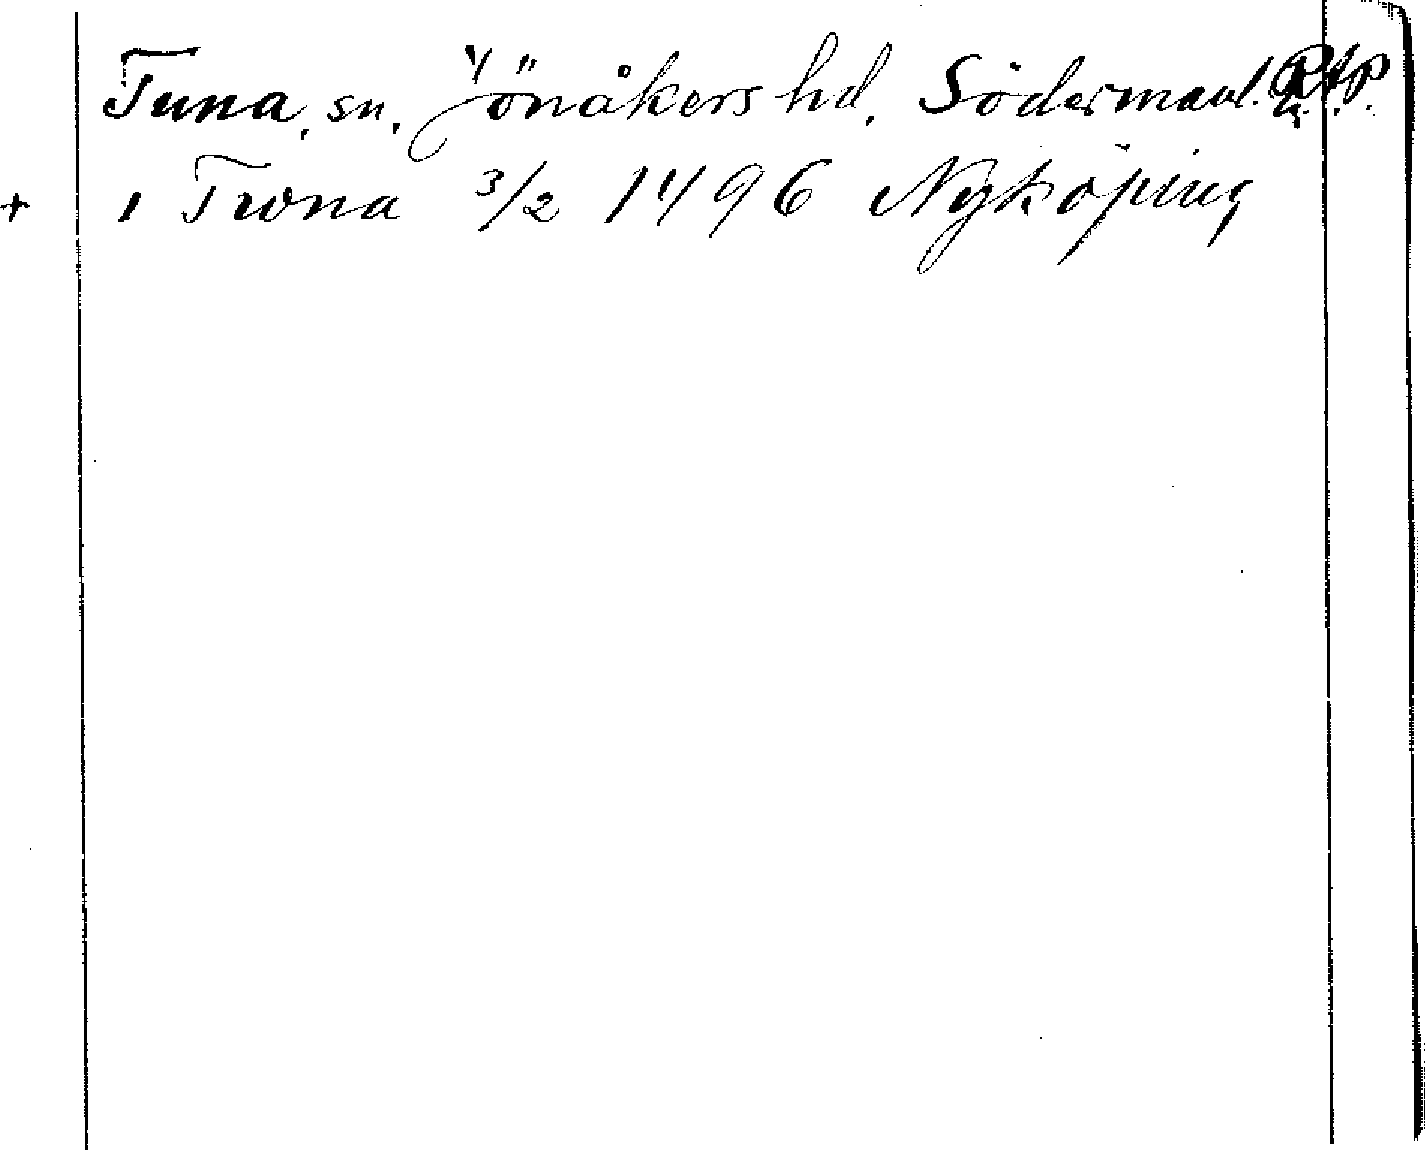 Tuna, sn, Jönåkers hd, Södermanl. Rtp.
+ i Twna 3/2 1496 Nyköping